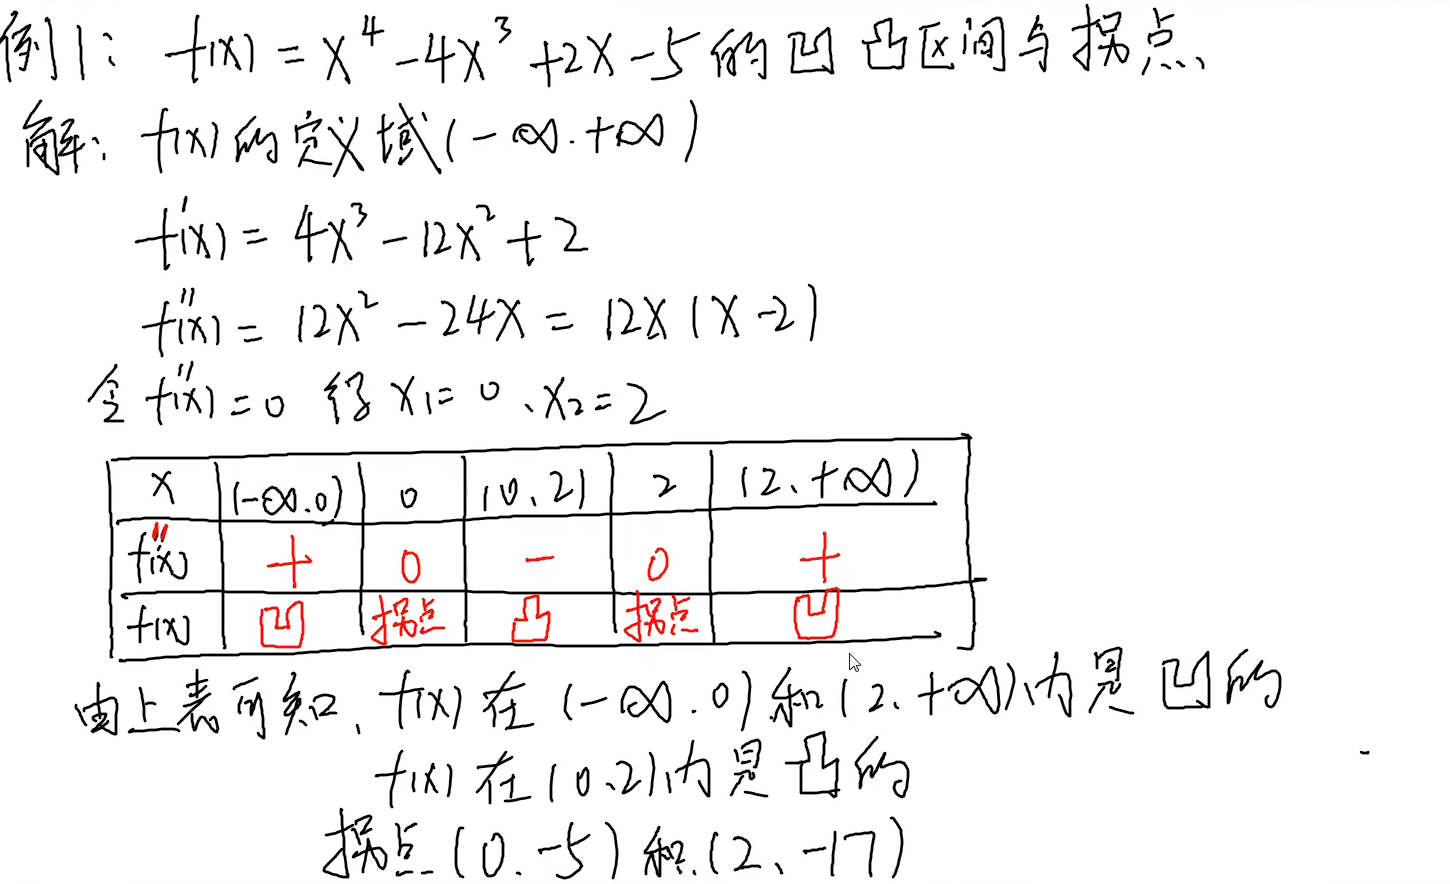 例1: f(x) = x⁴ -4x³ +2x -5 的凹凸区间与拐点
解: f(x)的定义域(-∞.+∞)
f'(x) = 4x³ -12x² +2
f''(x) = 12x² -24x = 12x(x-2)
令 f''(x) = 0 得 x₁=0、x₂=2
x (-∞.0) 0 (0、2) 2 (2、+∞)
f''(x) + 0 - 0 +
f(x) 凹 拐点 凸 拐点 凹
由上表可知、f(x)在(-∞.0)和(2、+∞)内是凹的
f(x)在(0、2)内是凸的
拐点(0.-5)和(2、-17)